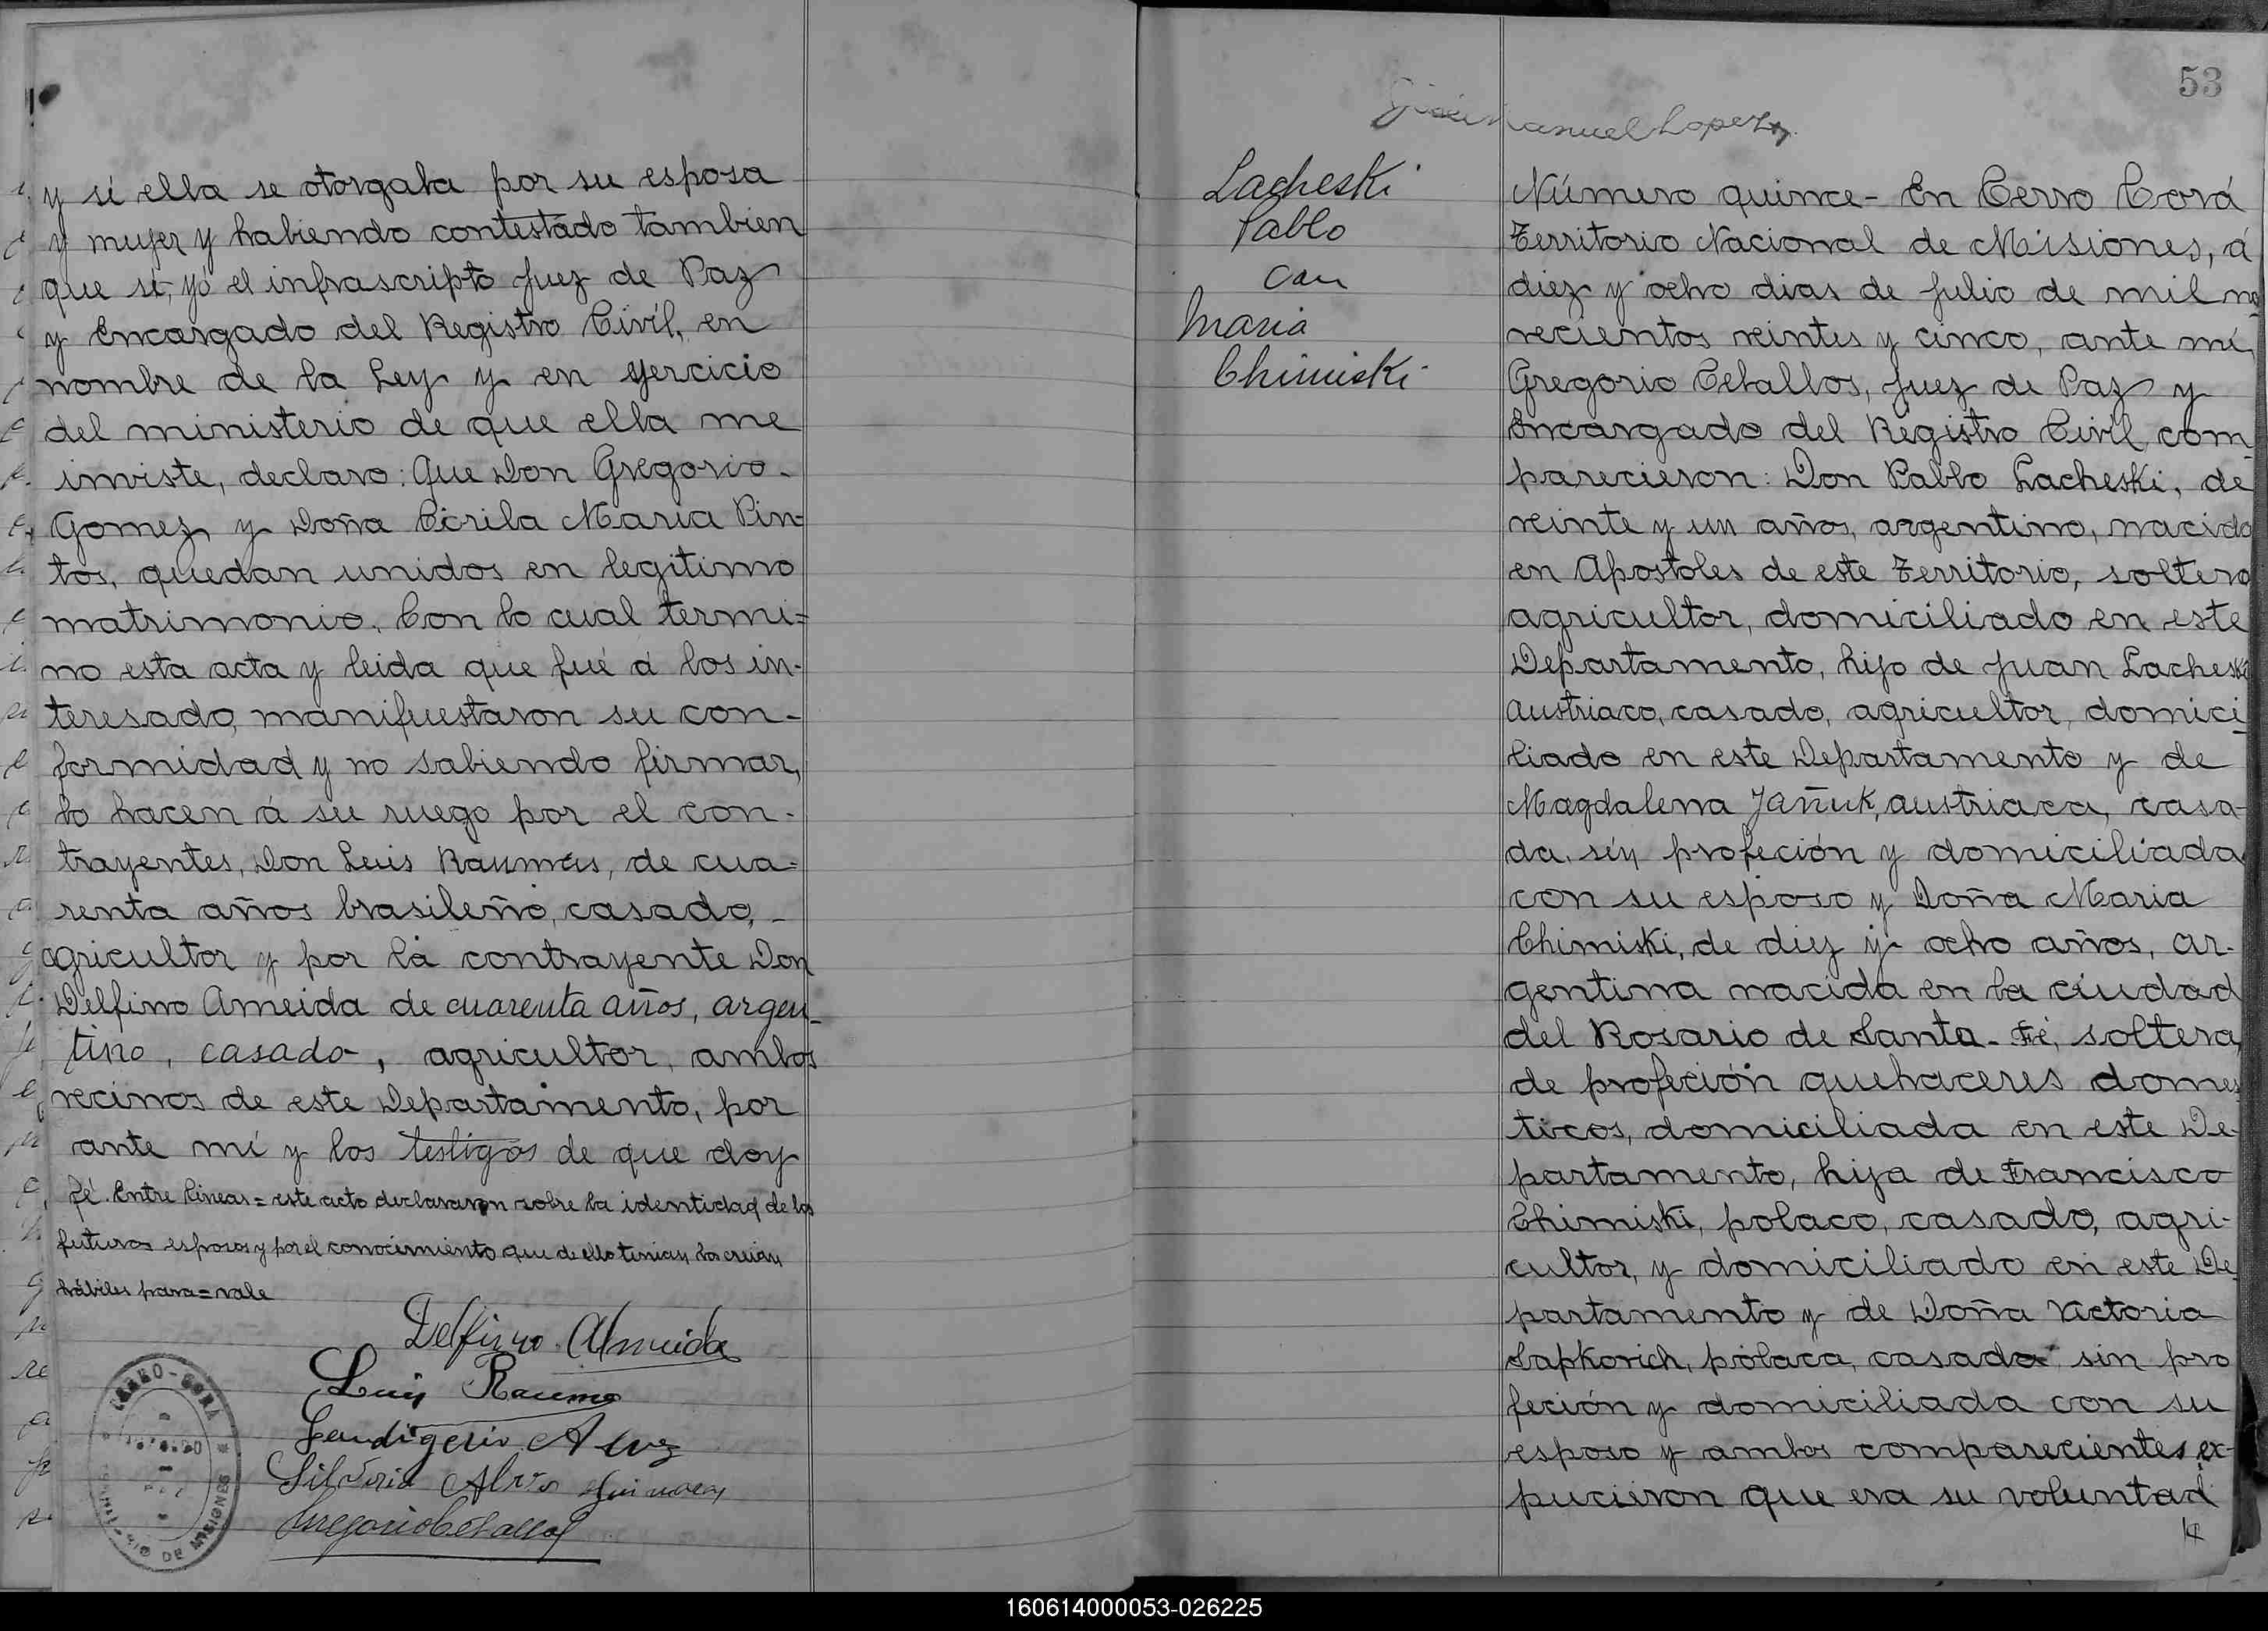 y si ella se otorgaba por su esposa
y mujer y habiendo contestado tambien
que si, yó el infrascripto Juez de Paz
y Encargado del Registro Civíl, en
nombre de la Ley y en ejercicio
del ministerio de que ella me
inviste, declaro: Que Don Gregorio.
Gomez y Doña Cirila Maria Pin=
tos, quedan unidos en legitimo
matrimonio. Con lo cual termi=
no esta acta y leida que fué á los in-
teresado, manifuestaron su con-
formidad y no sabiendo firmar,
lo hacen á su ruego por el con-
trayentes, Don Luis Raumus, de cua=
renta años brasileño, casado, -
agricultor y por la contrayente Don
Delfino Ameida de cuarenta años, argen-
tino, casado, agricultor, ambos
vecinos de este Departamento, por
ante mí y los testigos de que doy
fé. Entre lineas = este acto declararon sobre la identidad de los
futuros esposos y por el conocimiento que de ello tenian los creian
hábiles para = vale
Delfino Almeida
Luis Raumo
Silverio Alves
Gregorio Ceballos
CERRO-CORÁ
DE MISIONES
53
José Manuel Lopez
Lacheski
Pablo
con
Maria
Chimiski
Número quince- En Cerro Corá
Territorio Nacional de Misiones, á
diez y ocho dias de Julio de mil no
vecientos veintes y cinco, ante mí,
Gregorio Ceballos, Juez de Paz y
Encargado del Registro Civíl, com-
parecieron: Don Pablo Lacheski, de
veinte y un años, argentino, nacido
en Apostoles de este Territorio, soltero
agricultor, domiciliado en este
Departamento, hijo de Juan Lacheski
Austriaco, casado, agricultor, domici-
liado en este Departamento y de
Magdalena Jañuk, austriaca, casa-
da, sin profeción y domiciliada
con su esposo y Doña Maria
Chimiski, de diez y ocho años, ar-
gentina nacida en la ciudad
del Rosario de Santa-Fé, soltera,
de profeción quehaceres domes
ticos, domiciliada en este De-
partamento, hija de Francisco
Chimiski, polaco, casado, agri-
cultor, y domiciliado en este De-
partamento y de Doña Victoria
Sapkovich, polaca, casada sin pro
feción y domiciliada con su
esposo y ambos comparecientes ex-
pucieron que era su voluntad
160614000053-026225